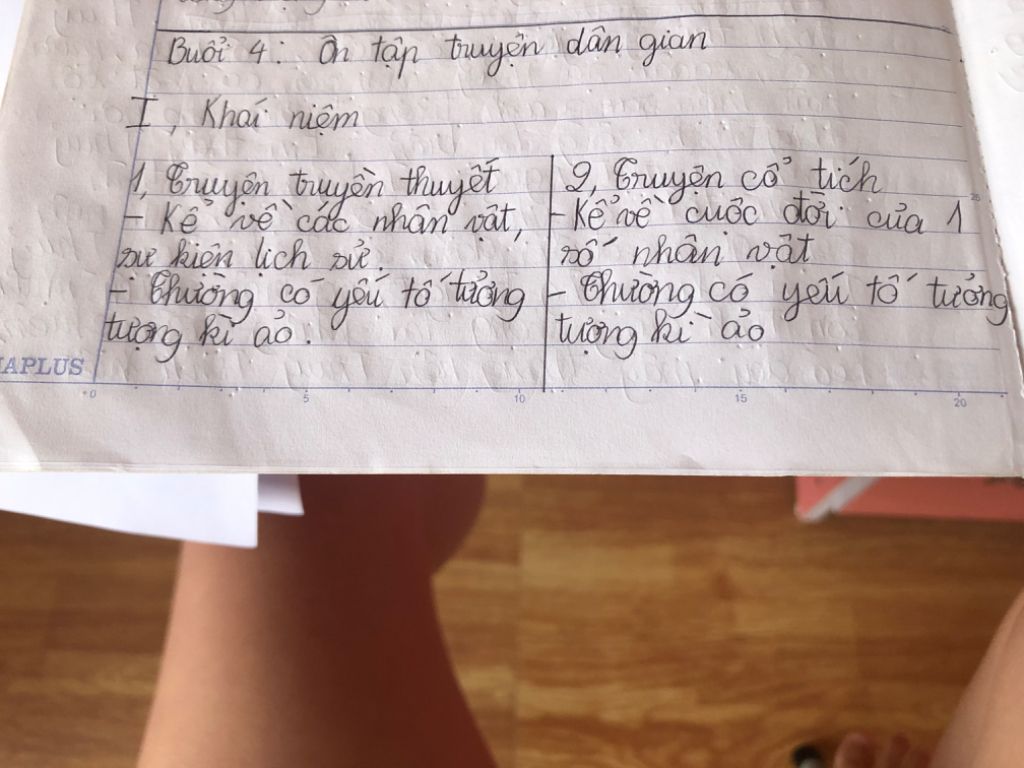 Buổi 4: Ôn tập truyện dân gian
I, Khái niệm
1, Truyện truyền thuyết
- Kể về các nhân vật,
sự kiện lịch sử
- Thường có yếu tố tưởng
tượng kì ảo.
2, Truyện cổ tích
- Kể về cuộc đời của 1
số nhân vật
- Thường có yếu tố tưởng
tượng kì ảo
APLUS
0 5 10 15 20